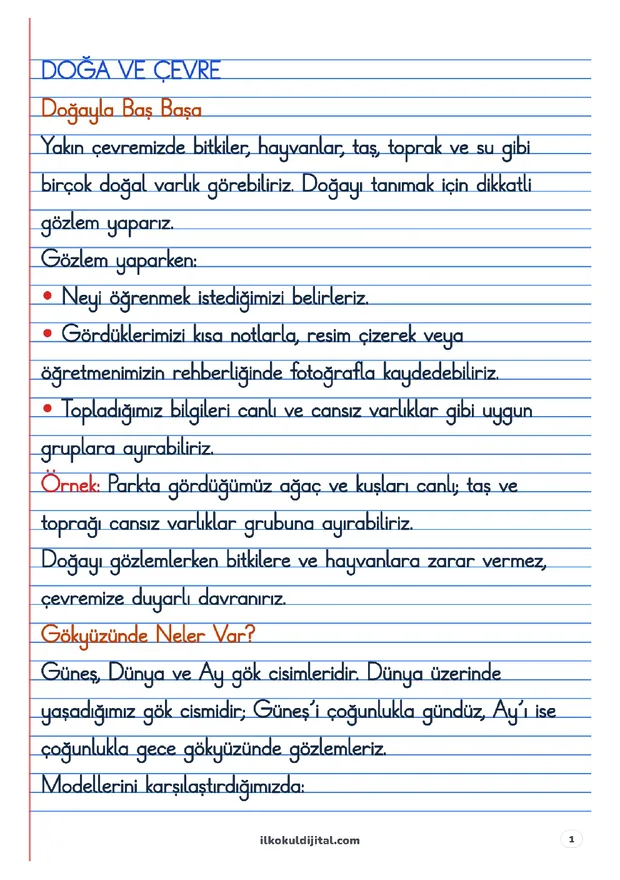 DOĞA VE ÇEVRE
Doğayla Baş Başa
Yakın çevremizde bitkiler, hayvanlar, taş, toprak ve su gibi
birçok doğal varlık görebiliriz. Doğayı tanımak için dikkatli
gözlem yaparız.
Gözlem yaparken:
• Neyi öğrenmek istediğimizi belirleriz.
• Gördüklerimizi kısa notlarla, resim çizerek veya
öğretmenimizin rehberliğinde fotoğrafla kaydedebiliriz.
• Topladığımız bilgileri canlı ve cansız varlıklar gibi uygun
gruplara ayırabiliriz.
Örnek: Parkta gördüğümüz ağaç ve kuşları canlı; taş ve
toprağı cansız varlıklar grubuna ayırabiliriz.
Doğayı gözlemlerken bitkilere ve hayvanlara zarar vermez,
çevremize duyarlı davranırız.
Gökyüzünde Neler Var?
Güneş, Dünya ve Ay gök cisimleridir. Dünya üzerinde
yaşadığımız gök cismidir; Güneş’i çoğunlukla gündüz, Ay’ı ise
çoğunlukla gece gökyüzünde gözlemleriz.
Modellerini karşılaştırdığımızda:
ilkokuldijital.com
1